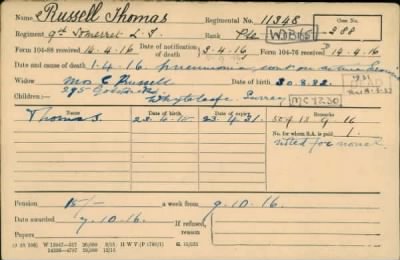 Russell Thomas Regimental No. 11348 Case No.
Regiment 9th Somerset L.I. Rank Pte WDB65 288
Form 104-88 received 14.4.16 Date of notification of death 3.4.16 Form 104-76 received 19.4.16
Date and cause of death 1.4.16 pneumonia on active service
Widow Mrs C Russell Date of birth 30.8.82.
295 Godstone Rd
Children:— Whyteleafe, Surrey MC 7230
Name. Date of birth. Date of expiry.
Thomas. 23.4.15 23.4.31. 50 9 13 9 16
No. for whom S.A. is paid 1.
noted for novel
Pension 15/- a week from 9.10.16.
Date awarded 7.10.16. If refused, reason
Papers